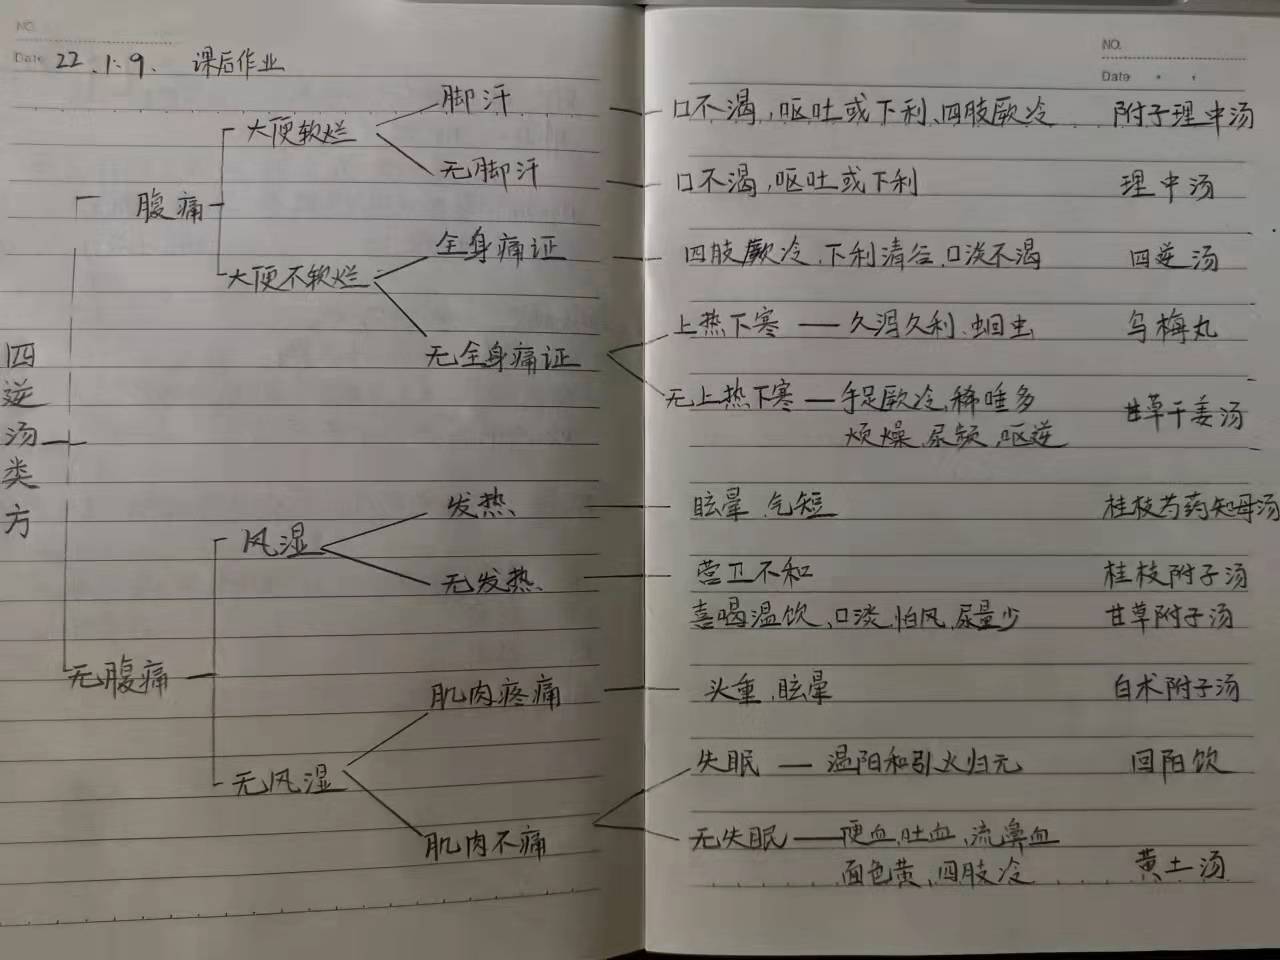 NO.
Date 22.1.9. 课后作业
NO.
Date
四逆汤类方
腹痛
大便软烂
脚汗
口不渴,呕吐或下利、四肢厥冷 附子理中汤
无脚汗
口不渴,呕吐或下利 理中汤
大便不软烂
全身痛证
四肢厥冷、下利清谷、口淡不渴 四逆汤
无全身痛证
上热下寒 — 久泻久利、蛔虫 乌梅丸
无上热下寒 — 手足厥冷、稀唾多
烦燥、尿频、呕逆 甘草干姜汤
无腹痛
风湿
发热
眩晕、气短 桂枝芍药知母汤
无发热
营卫不和 桂枝附子汤
喜喝温饮、口淡、怕风、尿量少 甘草附子汤
无风湿
肌肉疼痛
头重、眩晕 白术附子汤
肌肉不痛
失眠 — 温阳和引火归元 回阳饮
无失眠 — 便血、吐血、流鼻血
面色黄、四肢冷 黄土汤